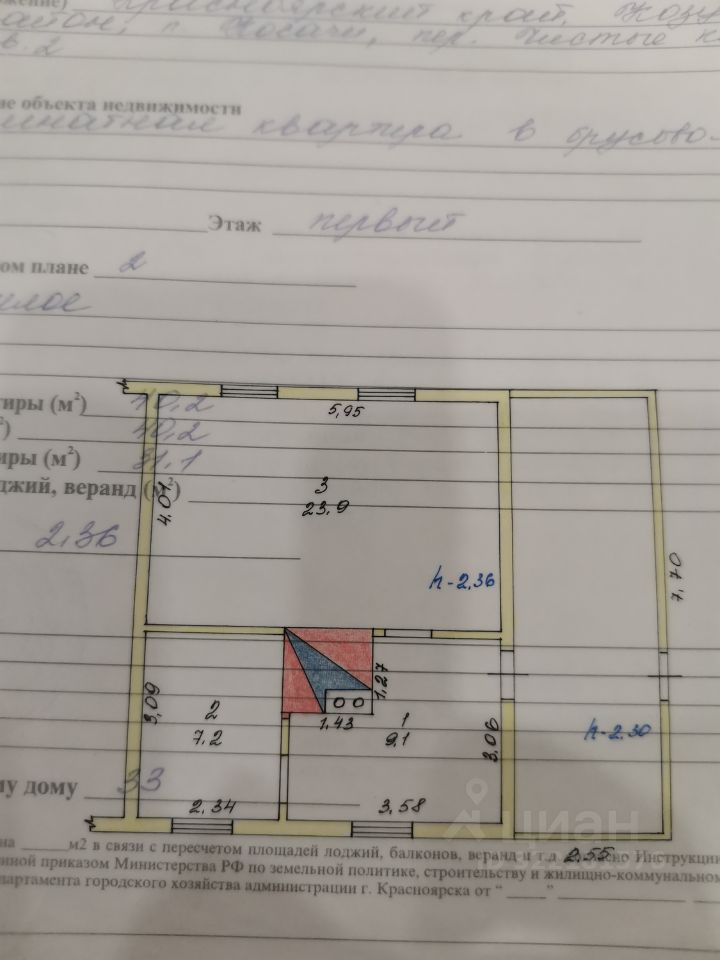 жение) Красноярский край, Козу
район, п. Косачи, пер. Чистые к
в. 2
ие объекта недвижимости
мнатная квартира в брусово-
Этаж первый
ом плане 2
илое
тиры (м²) 40,2
²) 40,2
иры (м²) 31,1
джий, веранд (м²)
2,36
5,95
4,01
3
23.9
h-2,36
7,70
3,09
2
7.2
1,27
1,43
1
9,1
3,06
h-2.30
му дому 33
2,34
3,58
2,55
циан
на _____м2 в связи с пересчетом площадей лоджий, балконов, веранд и т.д. ено Инструкции
нной приказом Министерства РФ по земельной политике, строительству и жилищно-коммунальном
партамента городского хозяйства администрации г. Красноярска от “ ____”